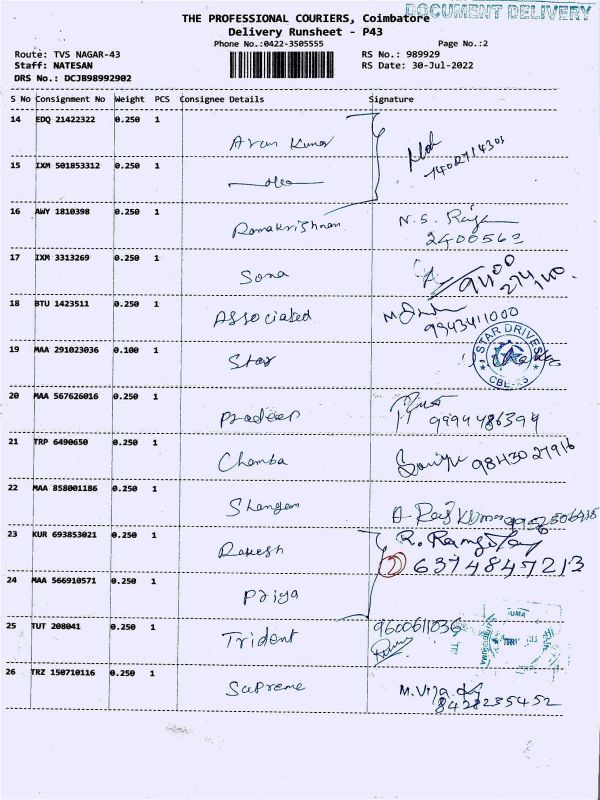 DOCUMENT DELIVERY
THE PROFESSIONAL COURIERS, Coimbatore
Delivery Runsheet - P43
Phone No.:0422-3505555 Page No.:2
Route: TVS NAGAR-43 RS No.: 989929
Staff: NATESAN RS Date: 30-Jul-2022
DRS No.: DCJB98992902
S No Consignment No Weight PCS Consignee Details Signature
14 EDQ 21422322 0.250 1
Arun Kumar
15 IXM 501853312 0.250 1
16 AWY 1810398 0.250 1
Ramakrishnan N.S.
2400562
17 IXM 3313269 0.250 1
Sona
18 BTU 1423511 0.250 1
Associated
9943411000
19 MAA 291023036 0.100 1
Star
STAR DRIVES
20 MAA 567626016 0.250 1
Pradeep 9994486399
21 TRP 6490650 0.250 1
Chamba 9843027916
22 MAA 858001186 0.250 1
23 KUR 693853021 0.250 1
Rakesh R.
6374847213
24 MAA 566910571 0.250 1
Priya
25 TUT 208041 0.250 1
Trident 9600611036
26 TRZ 150710116 0.250 1
Supreme M.
8428235452